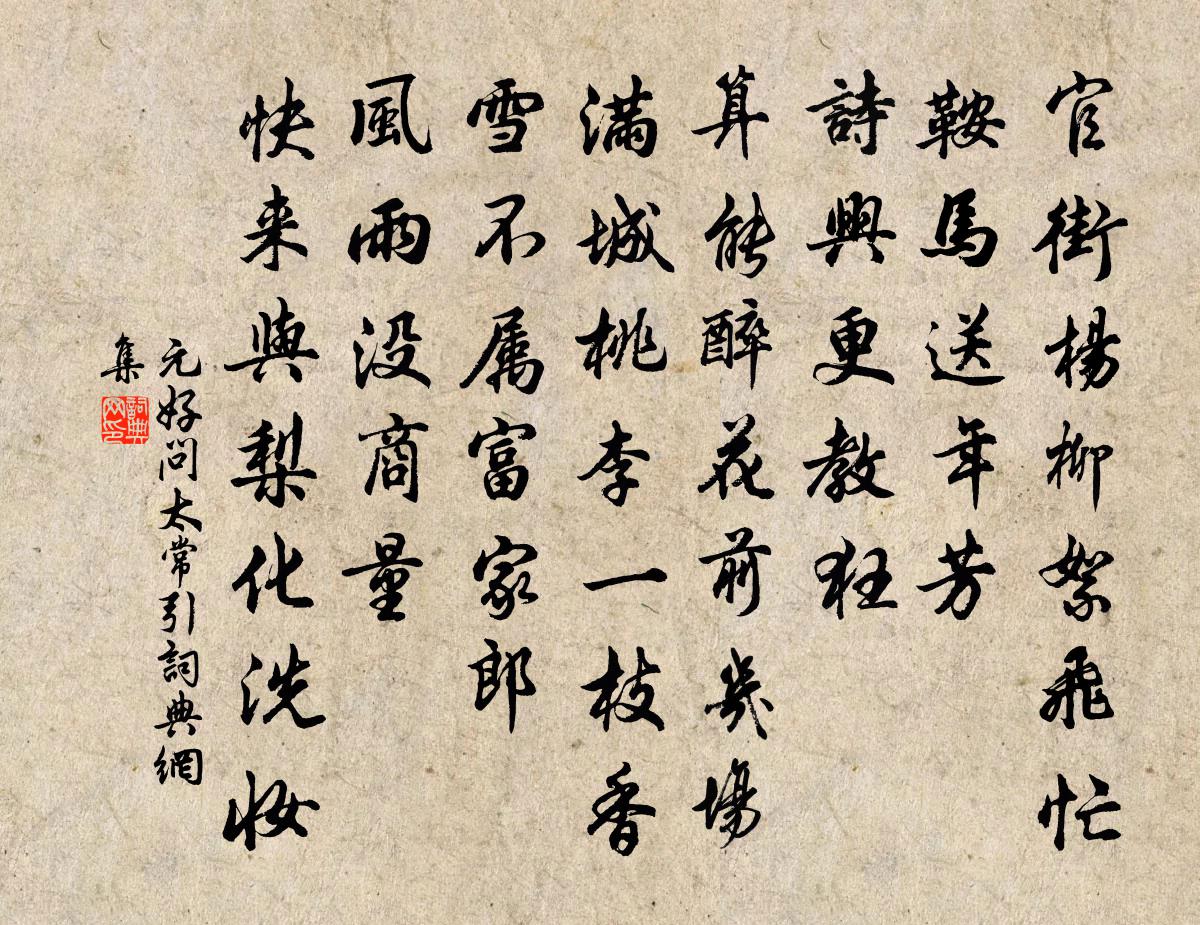 官街楊柳絮飛忙
鞍馬送年芳
詩興更教狂
算能醉花前幾場
滿城桃李一枝香
雪不属富家郎
風雨没商量
快来與梨化洗妝
元好問太常引詞典網
集
詞典
网印